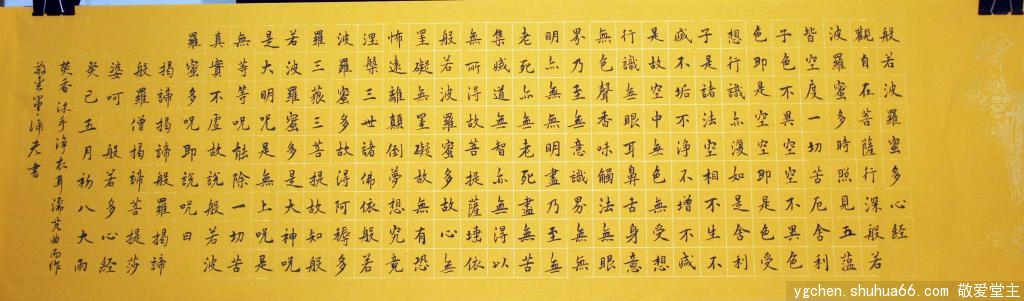 般若波羅蜜多心經
觀自在菩薩行深般若
波羅蜜多時照見五蘊
皆空度一切苦厄舍利
子色不異空空不異色
色即是空空即是色受
想行識亦復如是舍利
子是諸法空相不生不
滅不垢不淨不增不減
是故空中無色無受想
行識無眼耳鼻舌身意
無色聲香味觸法無眼
界乃至無意識界無無
明亦無無明盡乃至無
老死亦無老死盡無苦
集滅道無智亦無得以
無所得故菩提薩埵依
般若波羅蜜多故心無
罣礙無罣礙故無有恐
怖遠離顛倒夢想究竟
涅槃三世諸佛依般若
波羅蜜多故得阿耨多
羅三藐三菩提故知般
若波羅蜜多是大神咒
是大明咒是無上咒是
無等等咒能除一切苦
真實不虛故說般若波
羅蜜多咒即說咒曰
揭諦揭諦般羅揭諦
般羅僧揭諦菩提莎
婆呵 般若多心經
癸巳五月初八大雨
焚香沐手淨木耳濡梵曲而作
敬愛堂書
ygchen.shuhua66.com 敬爱堂主